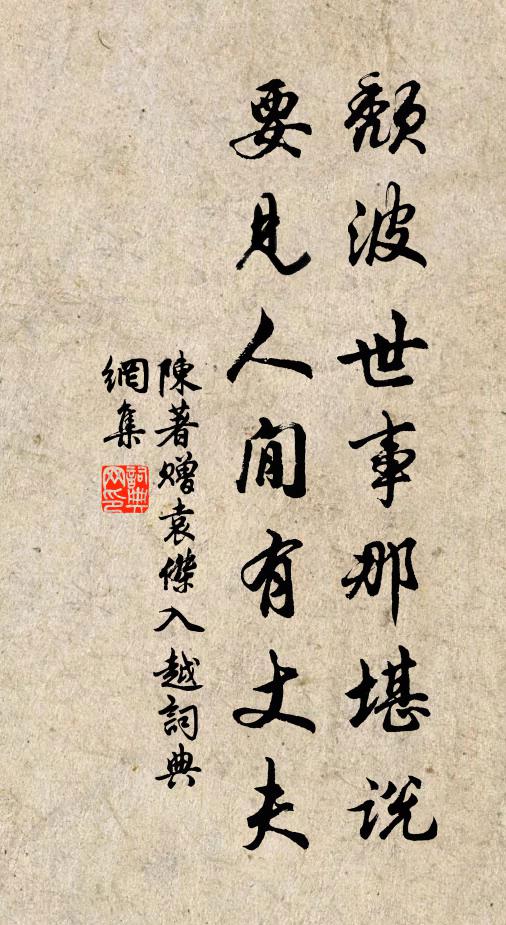 頹波世事那堪說
要見人間有丈夫
陳著贈袁傑入越詞典
網集
詞典
网印